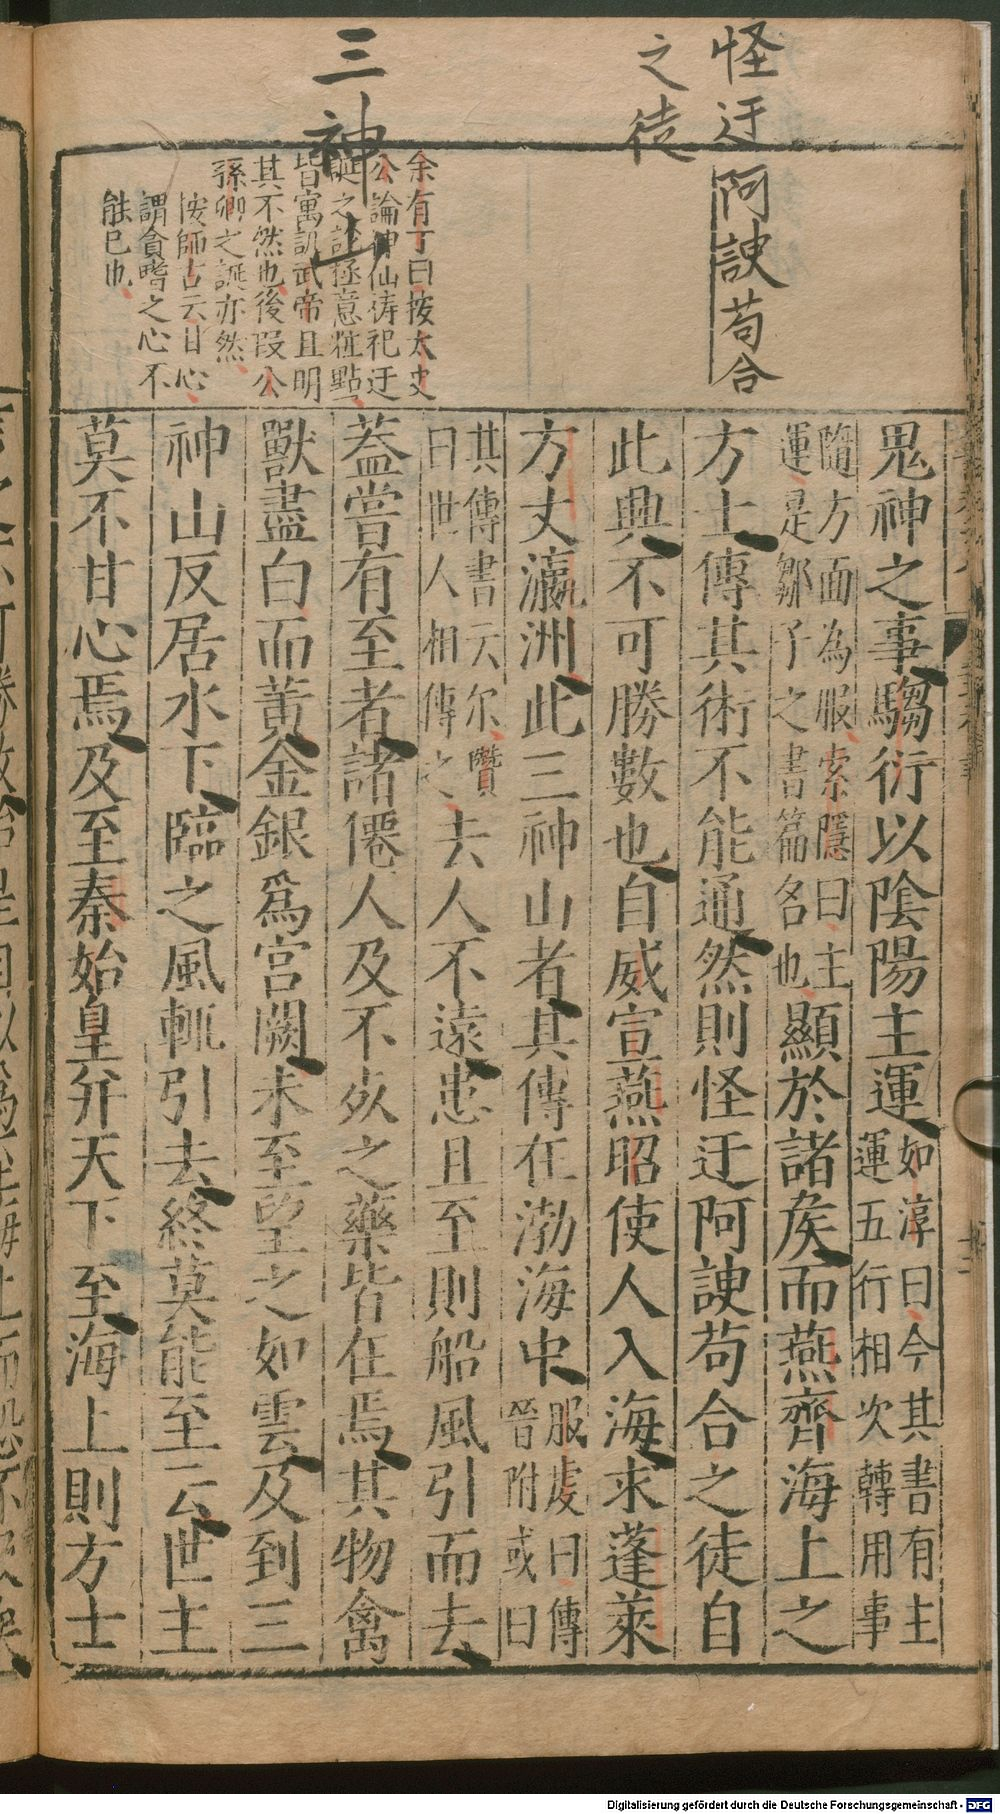 怪迂阿諛苟合
之徒
三神山
余有丁曰按太史
公論神仙涛祀迂
誕之說極意粧點
皆寓訊武帝且明
其不然也後段公
孫卿之誕亦然
按師古云甘心
謂貪嗜之心不
能已也
鬼神之事騶衍以陰陽主運如淳曰今其書有主
運五行相次轉用事
隨方面為服索隱曰主
運是鄒子之書篇名也顯於諸矦而燕齊海上之
方士傳其術不能通然則怪迂阿諛苟合之徒自
此興不可勝數也自威宣燕昭使人入海求蓬萊
方丈瀛洲此三神山者其傳在渤海中服虔曰傳
晉附或曰
其傳書云尔瓚
曰世人相傳之去人不遠患且至則船風引而去
葢嘗有至者諸僊人及不死之藥皆在焉其物禽
獸盡白而黄金銀爲宫闕未至望之如雲及到三
神山反居水下臨之風輒引去終莫能至云世主
莫不甘心焉及至秦始皇并天下至海上則方士
Digitalisierung gefördert durch die Deutsche Forschungsgemeinschaft - DFG